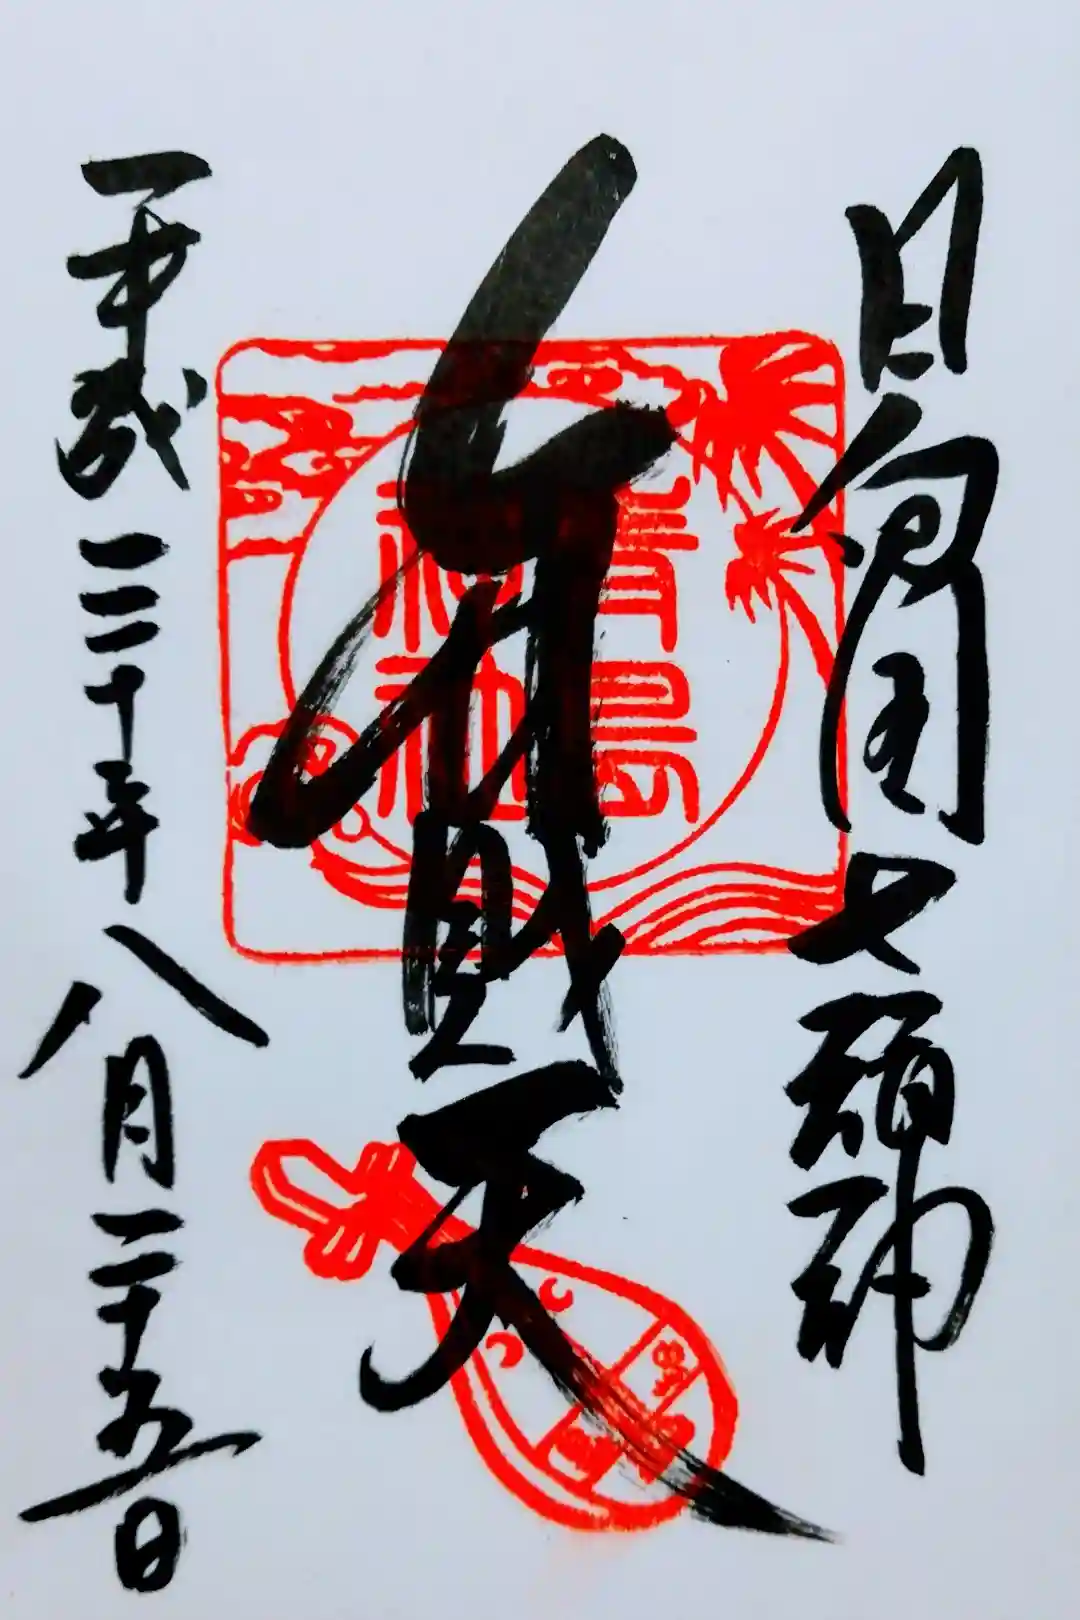 日向国七福神
弁財天
平成三十年八月二十五日
青島
神社